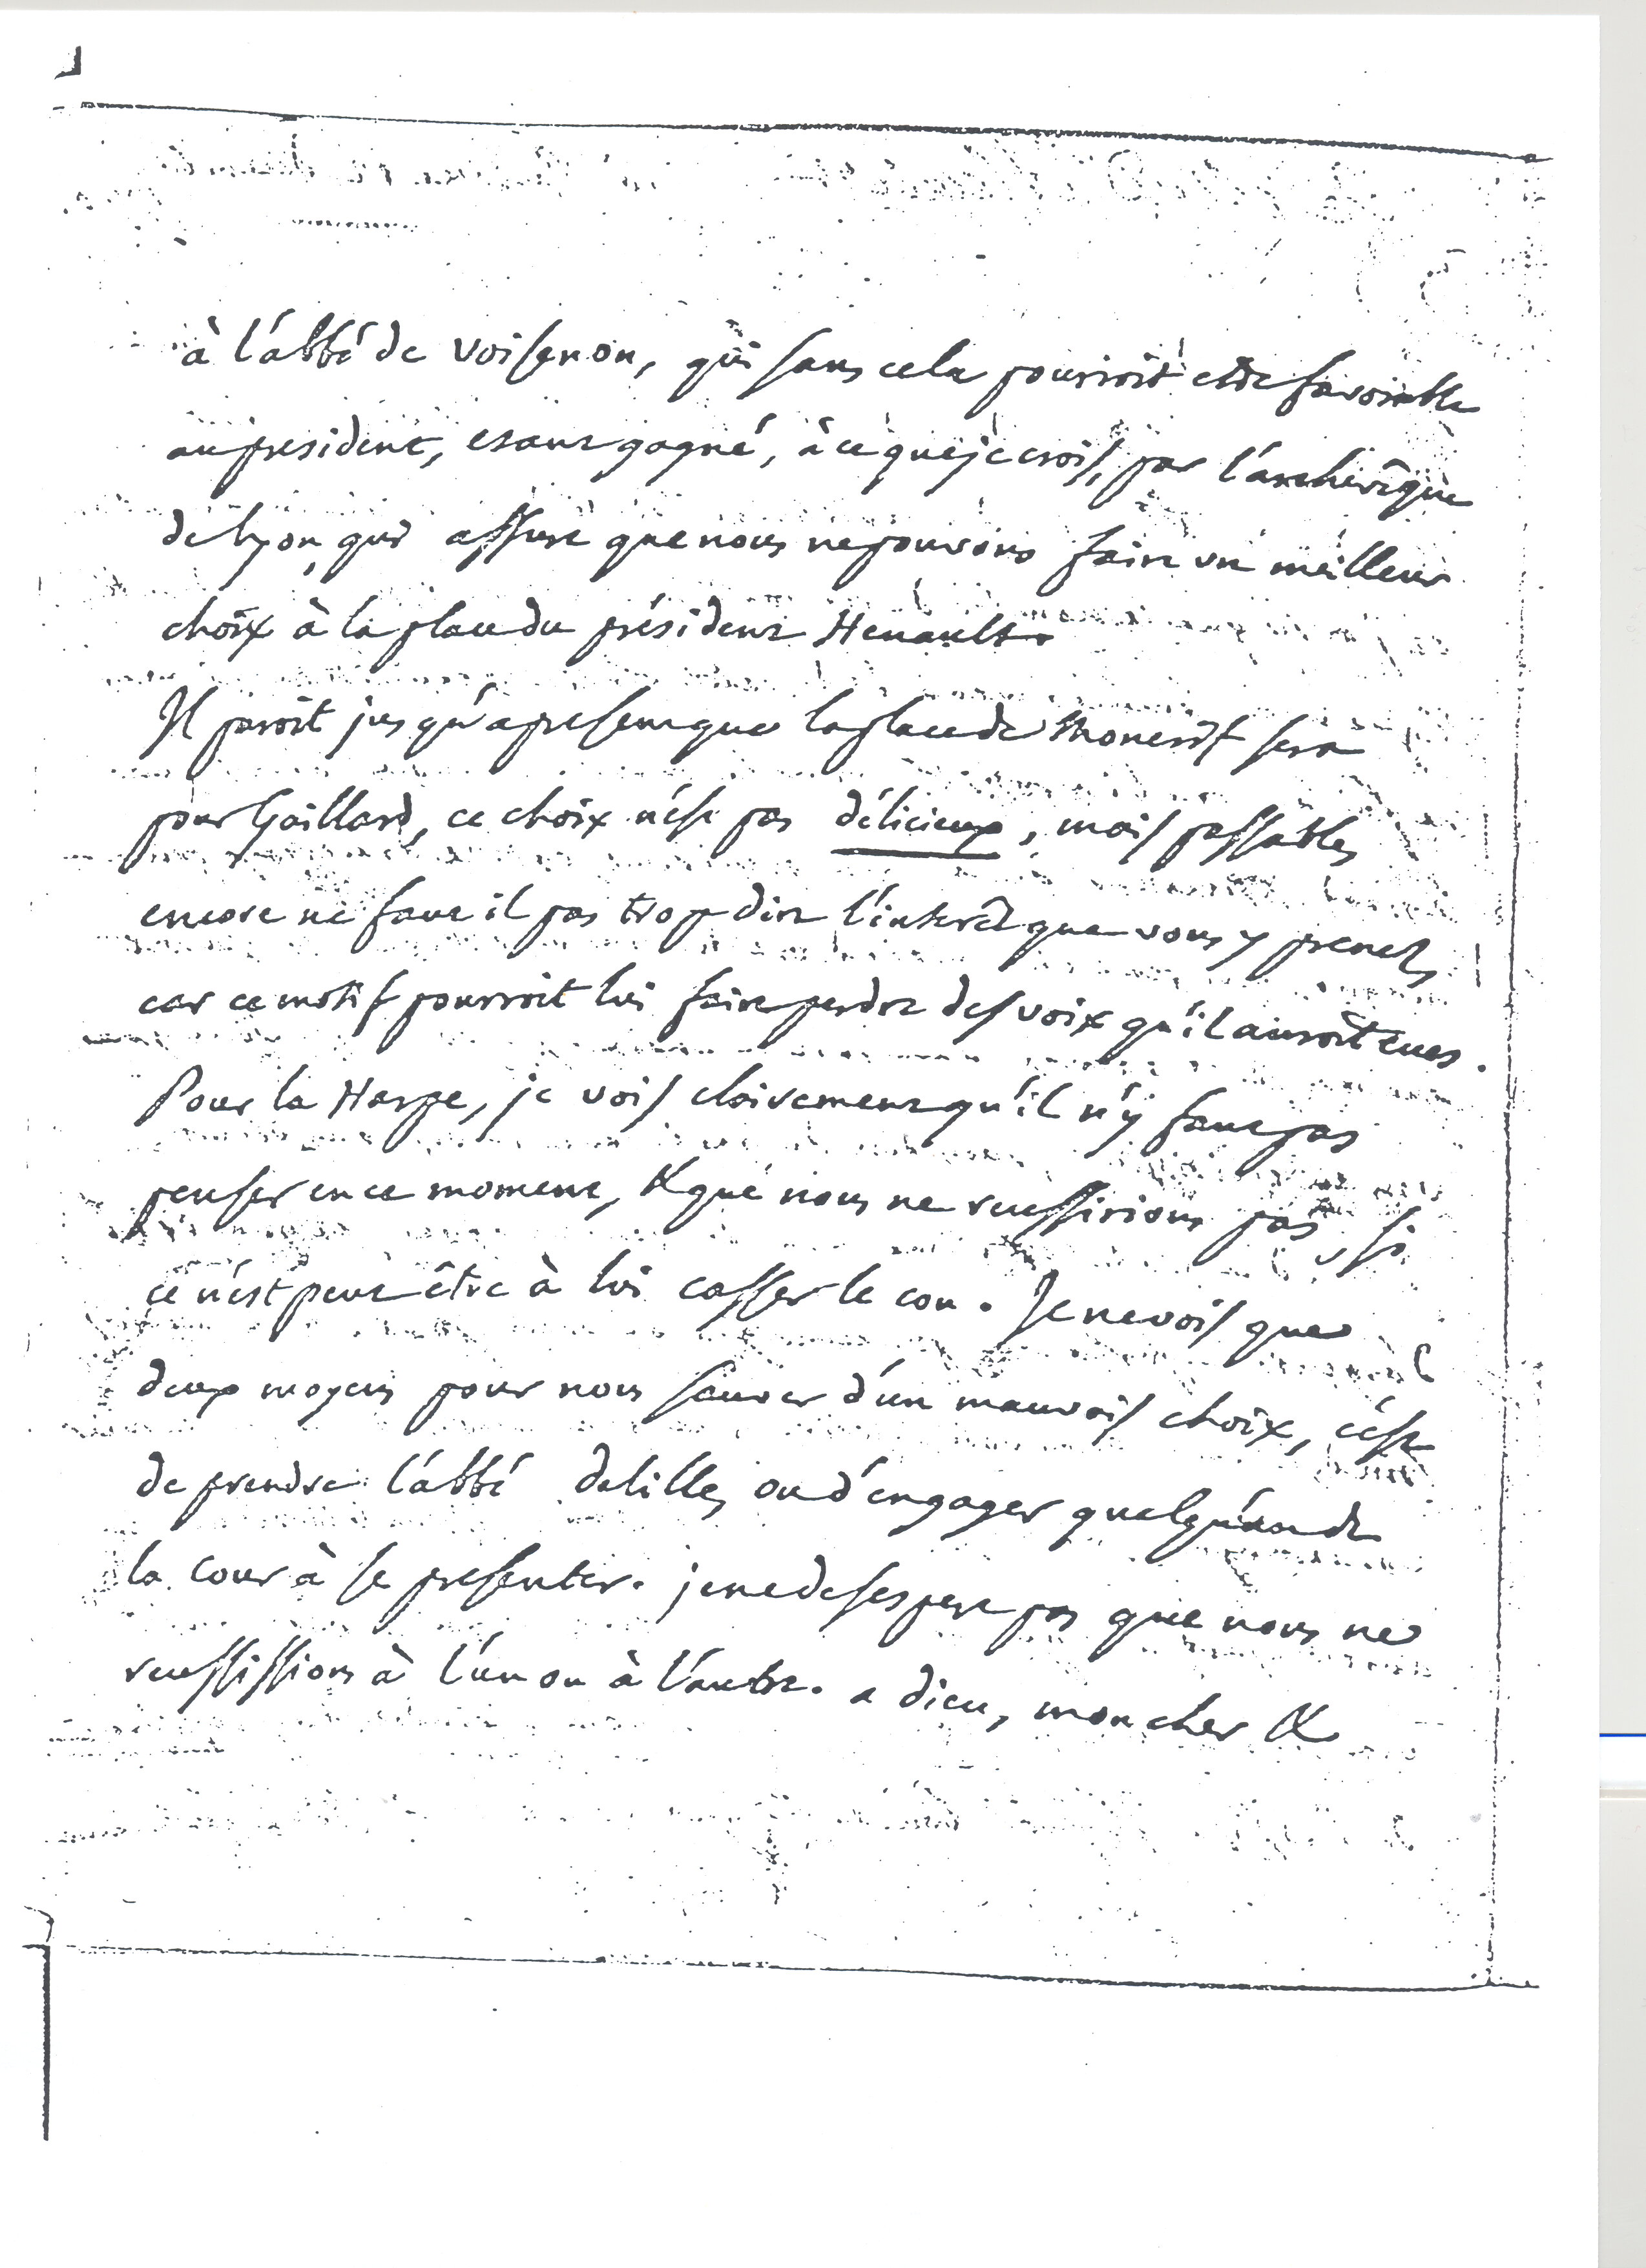 à l'abbé de Voisenon, qui sans cela pourroit etre favorable
au president, etant gagné, à ce que je crois, par l'archevêque
de Lyon, qui assure que nous ne pouvons faire un meilleur
choix à la place du président Henault.
Il paroit jusqu'a present que la place de Moncrif sera
pour Gaillard, ce choix n'est pas délicieux, mais passable,
encore ne faut il pas trop dire l'interêt que vous y prenez,
car ce motif pourroit lui faire perdre des voix qu'il auroit eues.
Pour la Harpe, je vois clairement qu'il n'y faut pas
penser en ce moment, & que nous ne reussirions pas, si
ce n'est peut être à lui casser le cou. Je ne vois que
deux moyens pour nous sauver d'un mauvais choix, c'est
de prendre l'abbé delille, ou d'engager quelqu'un de
la cour à se presenter. je ne desespere pas que nous ne
reussissions à l'un ou à l'autre. a dieu, mon cher &